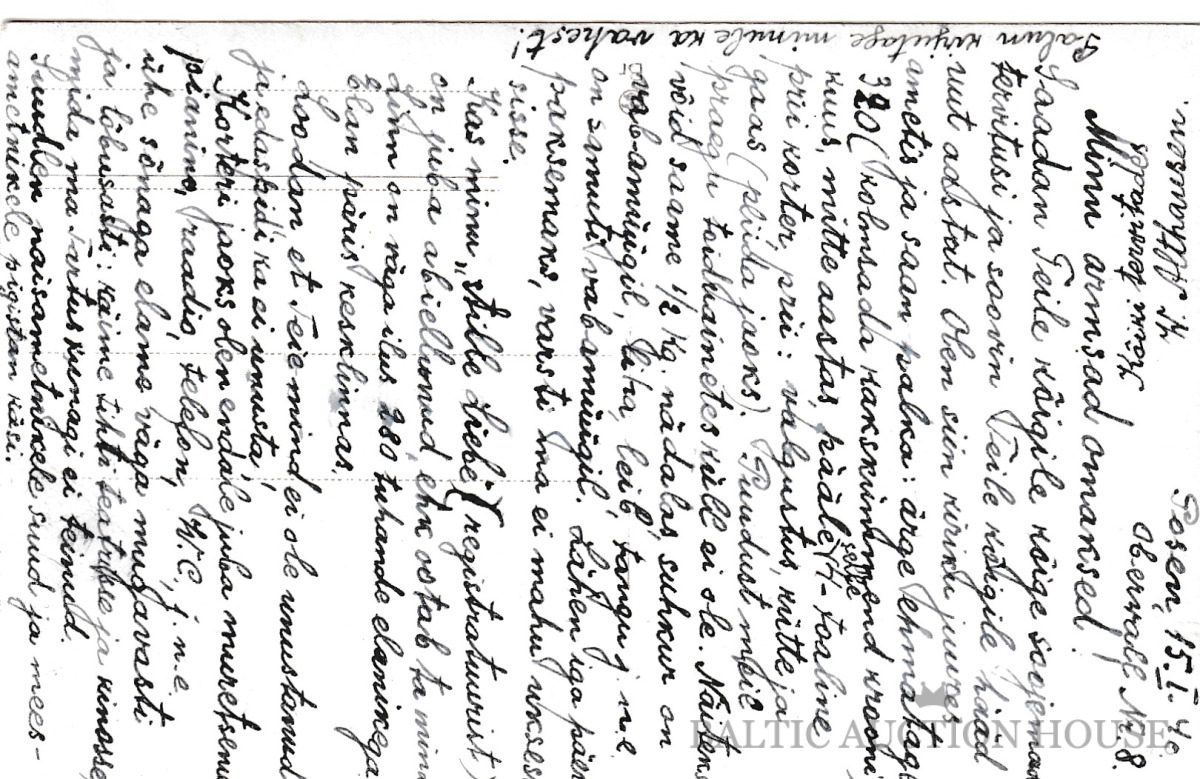 Posen, 15.I-40.
Oberwall Nr. 8.
Minu armsad omaksed!
Saadan Teile kõigile kõige soojemad
tervitusi ja soovin Teile kõigile häád
uut aastat. Olen siin kiriku juures
ametis ja saan palka: ärge ehmatage
320 (kolmsada kakskümmend krooni
kuus, mitte aastas, pääle selle 4-toaline
prii korter, prii: valgustus, küte ja
gaas (pliida jaoks). Puudust meil
praegu toiduainetes küll ei ole. Näiteks
võid saame 1/2 kg. nädalas suhkur on
vabamüügil, liha, leib, tangu j.n.e.
on samuti vabamüügil. Lähen iga päev
paksemaks, varsti ma ei mahu uksest
sisse.
Kas minu „Stille Liebe" (registratuurist)
on juba abiellunud, ehk ootab ta mind
Linn on väga ilus, 280 tuhande elanikega
Elan päris kesklinnas.
Loodan et Teie mind ei ole unustanud
ja edaspidi ka ei unusta,
Korteri jaoks olen endale juba muretsenud
pianino, raadio, telefon, W.C., j.n.e.
ühe sõnaga elame väga mugavasti
ja lõbusasti: käime tihti teatrisse ja kinosse
mida ma Tartus kunagi ei teinud.
Suudlen naisametnikele suud ja mees-
ametnikele pigistan käsi.
Palun kirjutage minule ka vahest!
BALTIC AUCTION HOUSE